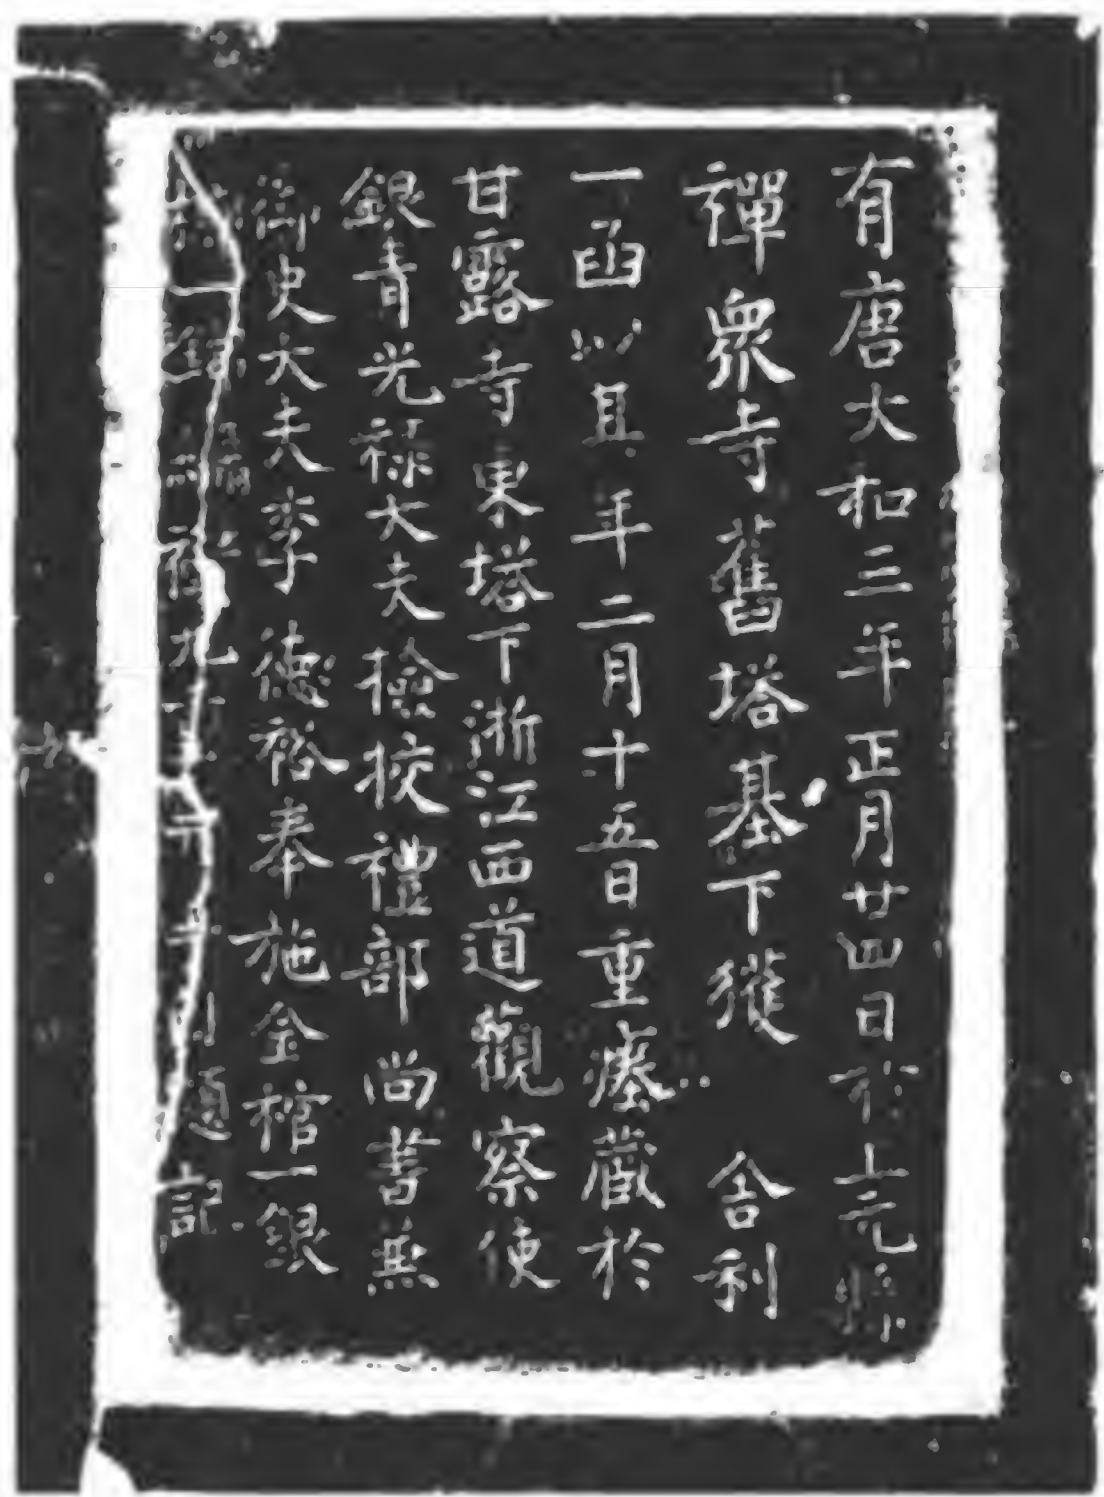 有唐大和三年正月廿四日於上元縣
禪衆寺舊塔基下獲舍利
一函以其年二月十五日重瘞藏於
甘露寺東塔下浙江西道觀察使
銀青光祿大夫撿挍禮部尚書兼
御史大夫李德裕奉施金棺一銀
禮九記